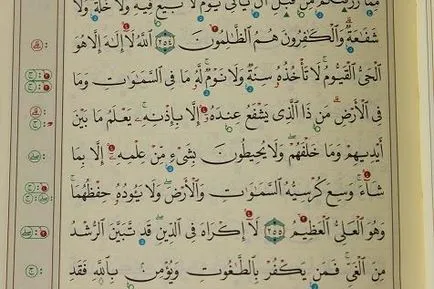 مِمَّا رَزَقْنَٰكُم مِّن قَبْلِ أَن يَأْتِىَ يَوْمٌ لَّا بَيْعٌ فِيهِ وَلَا خُلَّةٌ وَلَا
شَفَٰعَةٌ وَٱلْكَٰفِرُونَ هُمُ ٱلظَّٰلِمُونَ ٢٥٤ ٱللَّهُ لَآ إِلَٰهَ إِلَّا هُوَ
ٱلْحَىُّ ٱلْقَيُّومُ لَا تَأْخُذُهُۥ سِنَةٌ وَلَا نَوْمٌ لَّهُۥ مَا فِى ٱلسَّمَٰوَٰتِ وَمَا
فِى ٱلْأَرْضِ مَن ذَا ٱلَّذِى يَشْفَعُ عِندَهُۥٓ إِلَّا بِإِذْنِهِۦ يَعْلَمُ مَا بَيْنَ
أَيْدِيهِمْ وَمَا خَلْفَهُمْ وَلَا يُحِيطُونَ بِشَىْءٍ مِّنْ عِلْمِهِۦٓ إِلَّا بِمَا
شَآءَ وَسِعَ كُرْسِيُّهُ ٱلسَّمَٰوَٰتِ وَٱلْأَرْضَ وَلَا يَـُٔودُهُۥ حِفْظُهُمَا
وَهُوَ ٱلْعَلِىُّ ٱلْعَظِيمُ ٢٥٥ لَآ إِكْرَاهَ فِى ٱلدِّينِ قَد تَّبَيَّنَ ٱلرُّشْدُ
مِنَ ٱلْغَىِّ فَمَن يَكْفُرْ بِٱلطَّٰغُوتِ وَيُؤْمِنۢ بِٱللَّهِ فَقَدِ